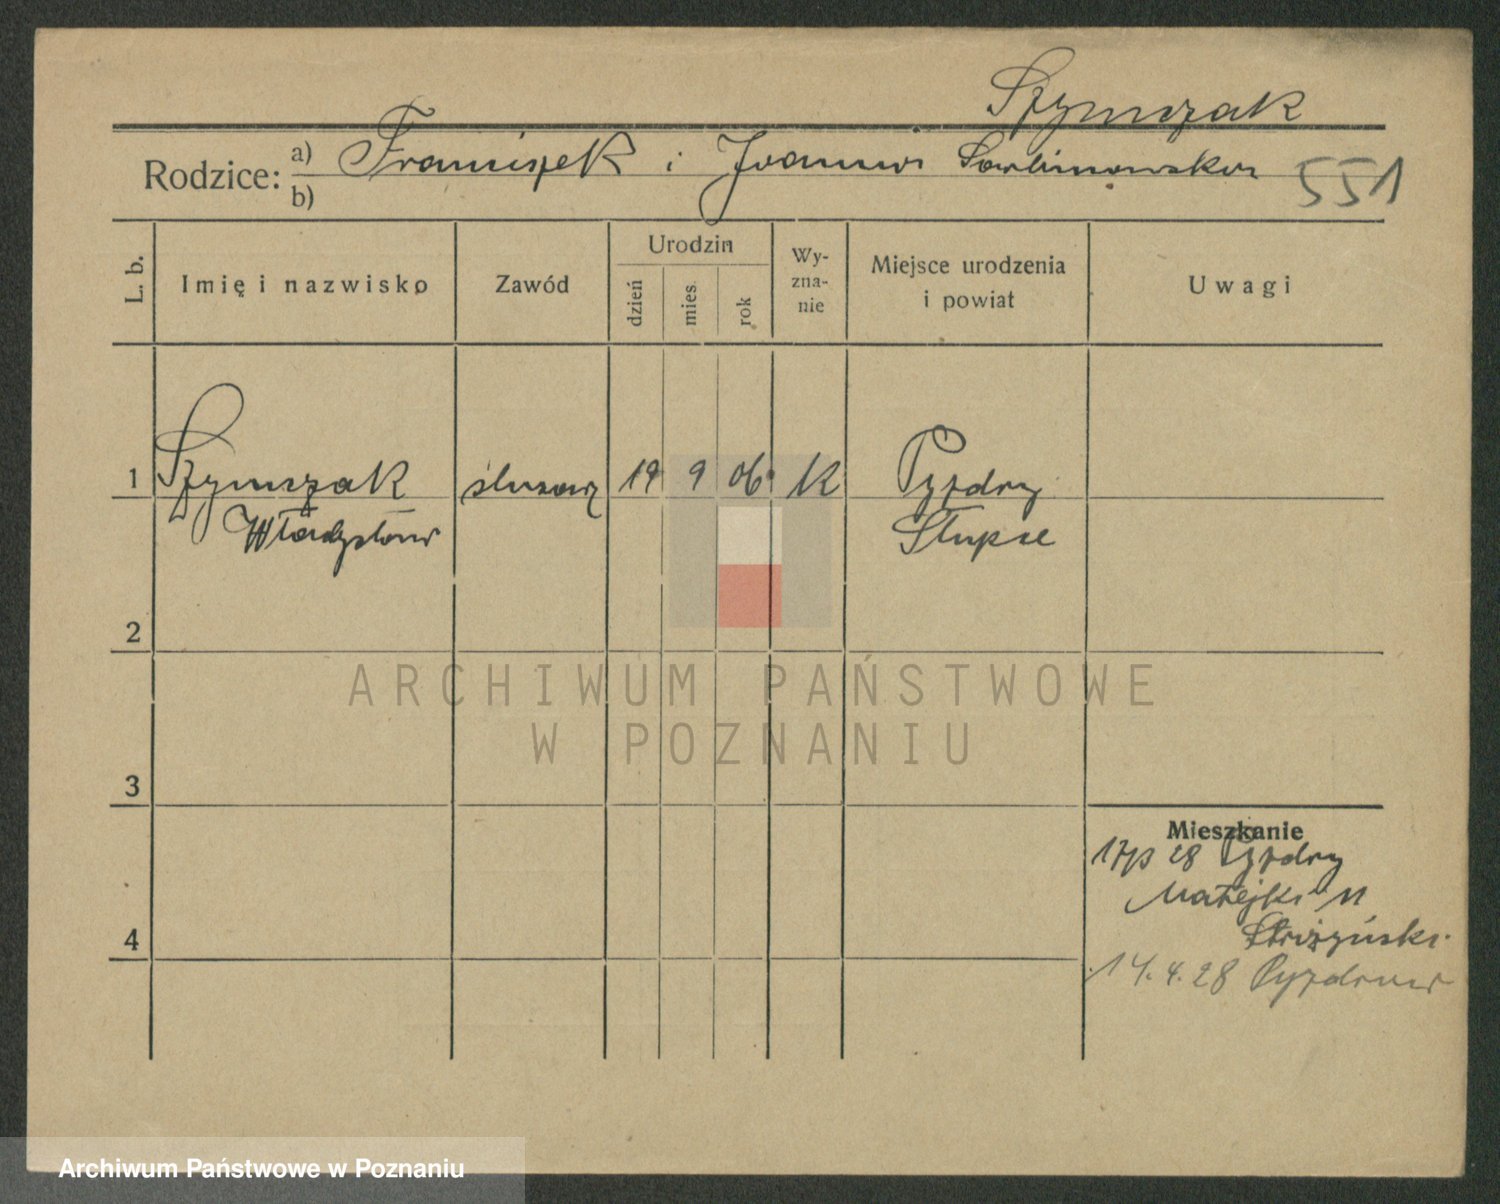 Szymczak
Rodzice: a) Franciszek i Joanna
b)
551
L. b.
Imię i nazwisko
Zawód
Urodzin
dzień
mies.
rok
Wy-
zna-
nie
Miejsce urodzenia
i powiat
Uwagi
1 Szymczak ślusarz 19 9 06 K Pyzdry
Władysław Słupce
2
ARCHIWUM PAŃSTWOWE
W POZNANIU
3
Mieszkanie
28 Pyzdry
Matejki 11
4
14. 4. 28 Pyzdr
Archiwum Państwowe w Poznaniu